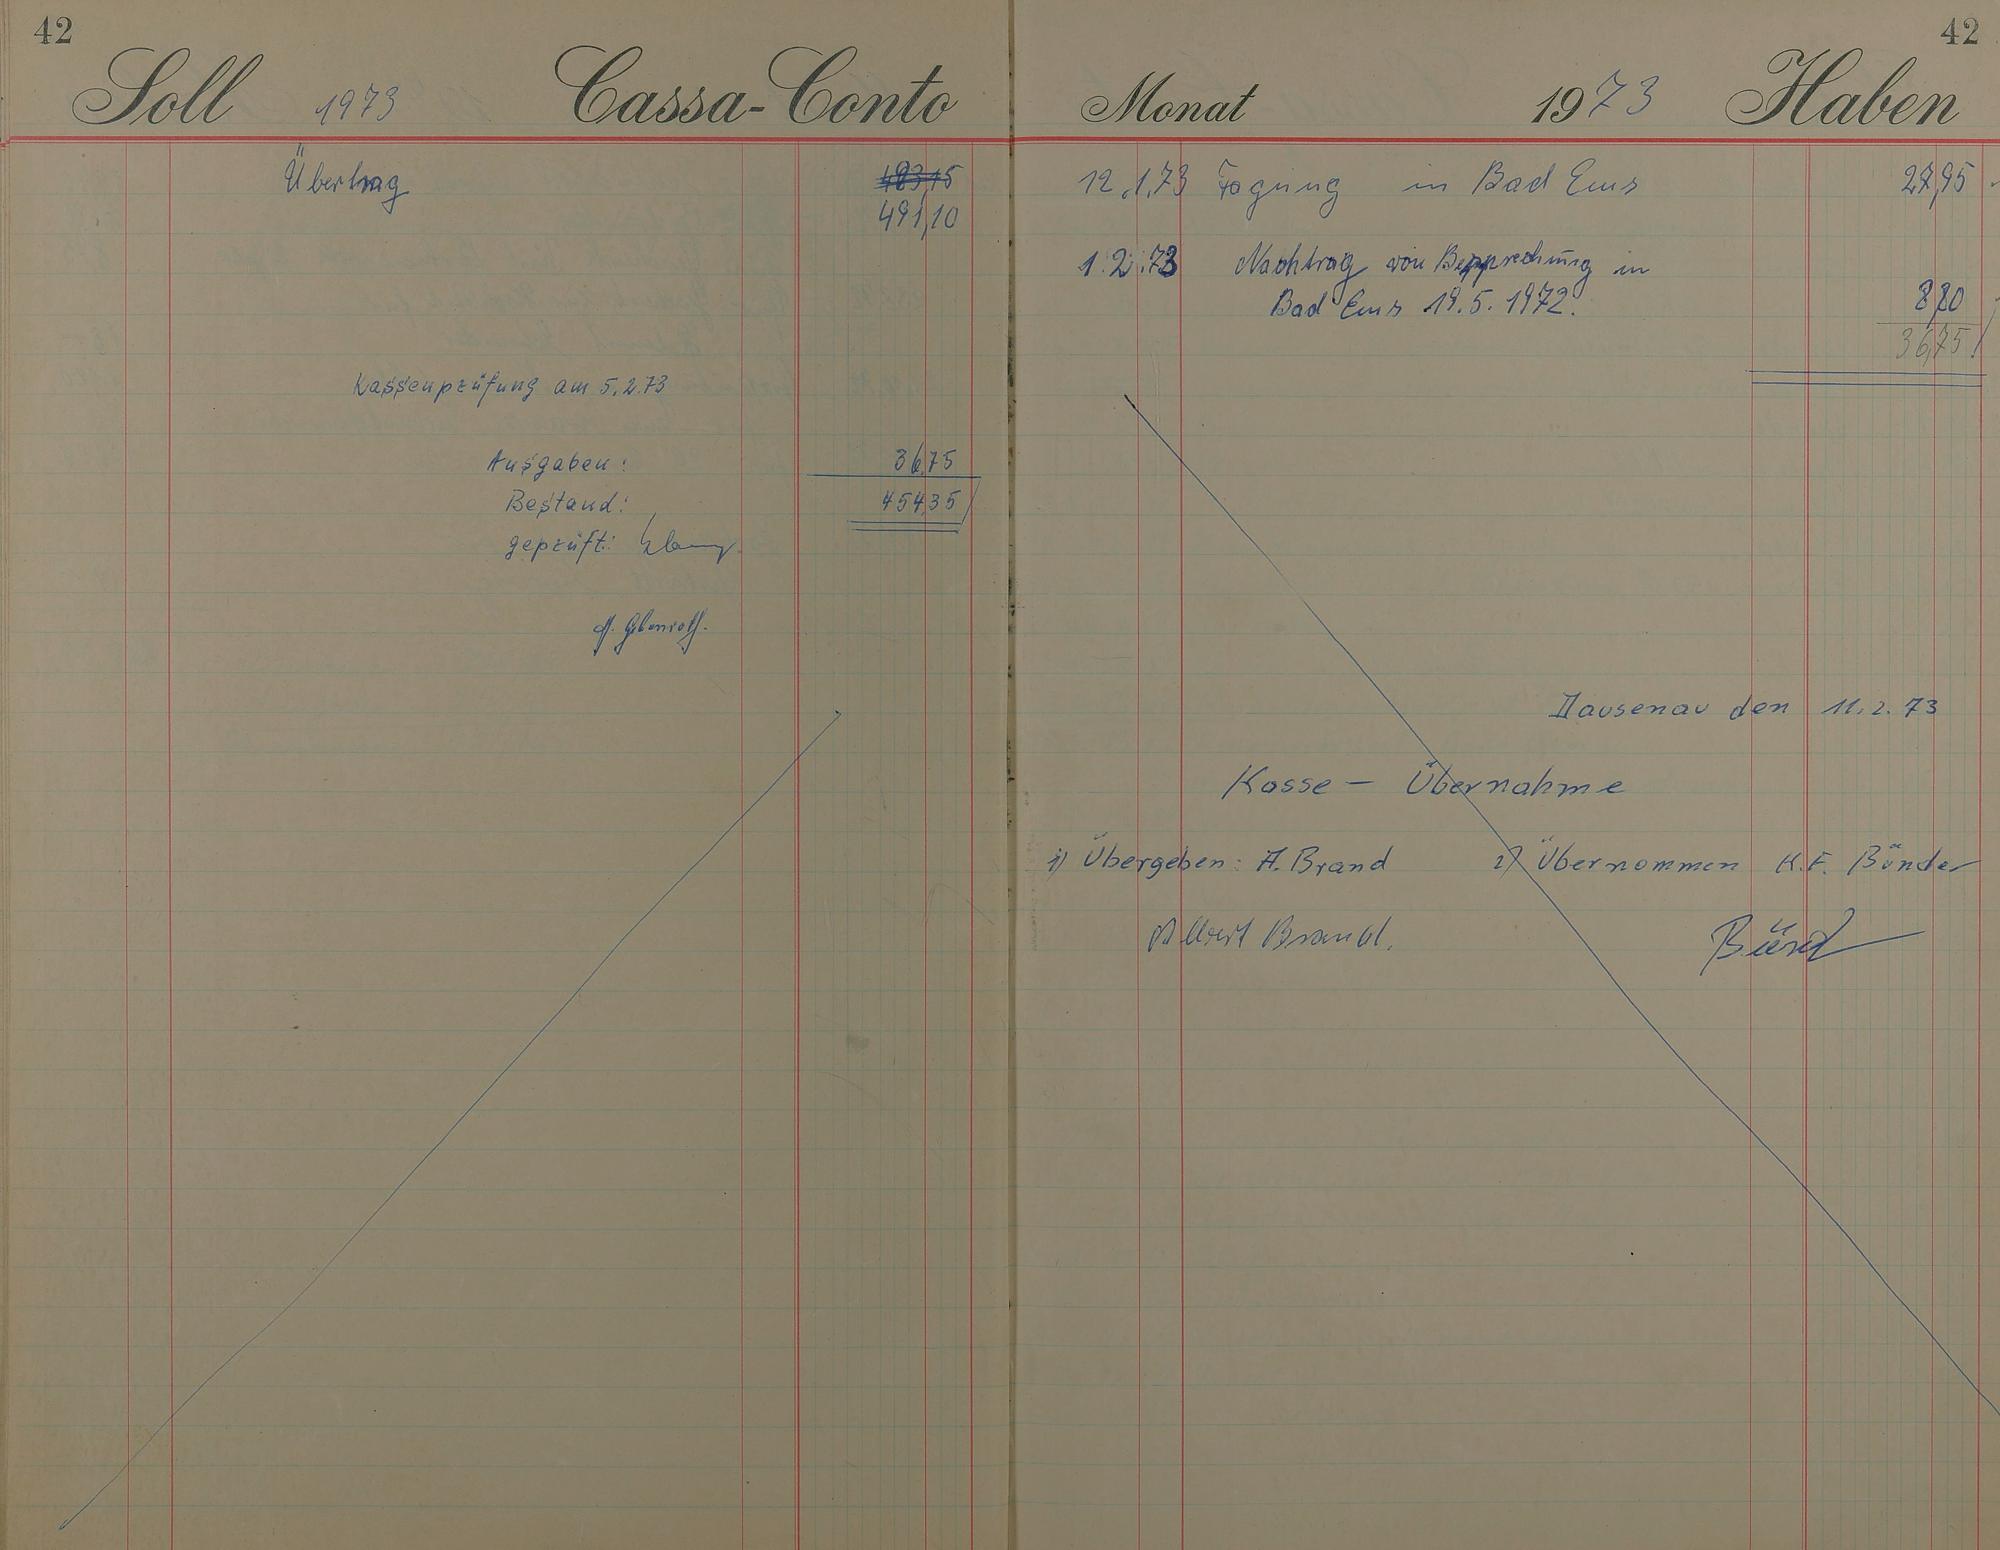 42
Soll 1973 Cassa-Conto
Übertrag 483,15
491,10
Kassenprüfung am 5.2.73
Ausgaben: 36,75
Bestand: 454,35
geprüft:
42
Monat 1973 Haben
12.1.73 Tagung in Bad Ems 27,95
1.2.73 Nachtrag von Bepprechung in
Bad Ems 19.5.1972. 8,80
36,75
Dausenau den 11.2.73
Kasse - Übernahme
1) Übergeben: A. Brand 2) Übernommen K.F. Bünder
Albert Brand.
Bünd